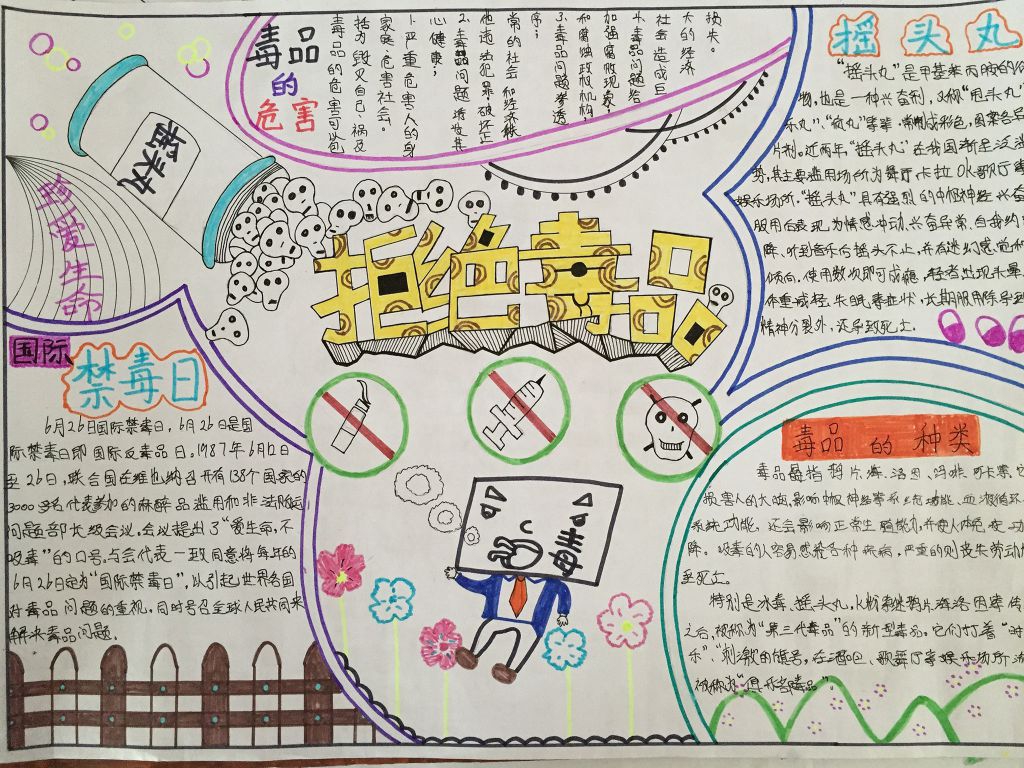 毒品
的
危害
毒品的危害可以包
括为 毁灭自己、祸及
家庭,危害社会。
1.严重危害人的身
心健康;
2.毒品问题诱发其
他违法犯罪破坏正
常的社会和经济秩
序;
3.毒品问题渗透
和腐蚀政权机构,
加强腐败现象;
4.毒品问题给
社会造成巨
大的经济
损失。
摇头丸
珍爱生命
拒绝毒品
摇头丸
“摇头丸”是甲基苯丙胺的
物,也是一种兴奋剂,又称“甩头丸”
乐丸”、“疯丸”等等,常制成彩色,图案各异
片剂。近两年“摇头丸”在我国渐呈泛滥
势,其主要滥用场所为舞厅、卡拉OK歌厅等
娱乐场所,“摇头丸”具有强烈的中枢神经兴奋
服用后表现为情感冲动、兴奋异常、自我约
降、听到音乐后摇头不止,并有迷幻感觉和
倾向,使用数次即可成瘾。轻者出现头晕
体重减轻、失眠毒症状,长期服用除导致
精神分裂外,还导致死亡。
国际
禁毒日
6月26日国际禁毒日,6月26日是国
际禁毒日即国际反毒品日。1987年6月12日
至26日,联合国在维也纳召开有138个国家的
3000多名代表参加的麻醉品滥用和非法贩运
问题部长级会议,会议提出了“爱生命,不
吸毒”的口号。与会代表一致同意将每年的
6月26定为“国际禁毒日”,以引起世界各国
对毒品问题的重视,同时号召全球人民共同来
解决毒品问题。
毒品 的 种类
毒品是指鸦片、海洛因、吗啡、可卡等,它
损害人的大脑,影响中枢神经系统功能、血液循环
系统功能,还会影响正常生殖能力,并使人体免疫功
降。吸毒的人容易感染各种疾病,严重的则丧失劳动力
至死亡。
特别是冰毒、摇头丸、K粉等继鸦片、海洛因等传
之后,被称为“第三代毒品”的新型毒品。它们打着“时
乐”、“刺激”的旗号,在酒吧、歌舞厅等娱乐场所
被称为“俱乐部毒品”。
毒